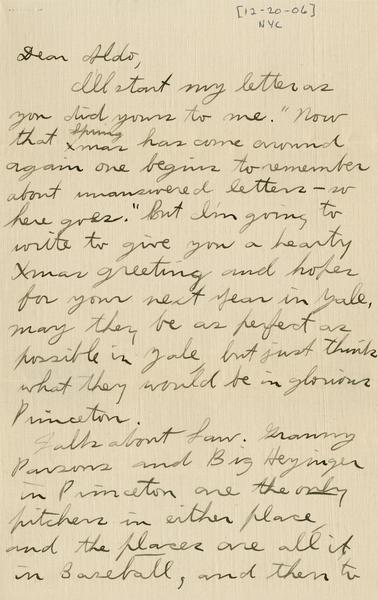 [12-20-06]
NYC
Dear Aldo,
I'll start my letter as
you did yours to me. "Now
that Spring Xmas has come around
again one begins to remember
about unanswered letters - so
here goes." But I'm going to
write to give you a hearty
Xmas greeting and hopes
for your next year in Yale,
may they be as perfect as
possible in Yale, but just think
what they would be in glorious
Princeton.
Talk about Law. Granny
Parsons and Big Heyinger
in Princeton are the only
pitchers in either place
and the places are all it
in Baseball, and then to